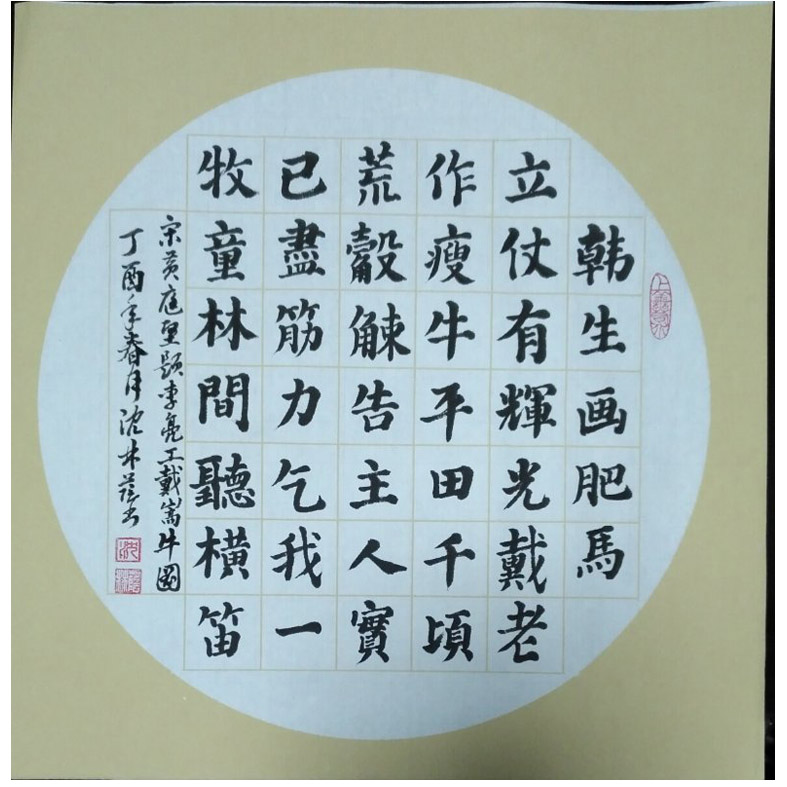 韩生画肥馬
立仗有輝光戴老
作瘦牛平田千頃
荒觳觫告主人實
已盡筋力乞我一
牧童林間聽橫笛
宋黄庭堅題李亮工戴嵩牛圖
丁酉年春月沈林蔭书
上善若水
沈